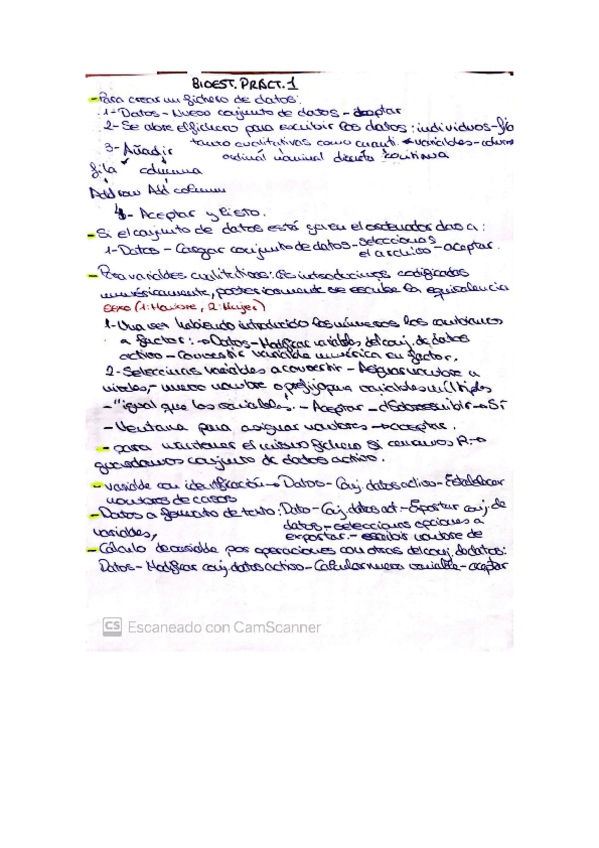 BIOEST. PRÁCT. 1
- Para crear un fichero de datos:
1- Datos - Nuevo conjunto de datos - aceptar
2- Se abre el fichero para escribir los datos: individuos - fila
tanto cualitativas como cuanti. variables - column
3- Añadir ordinal nominal discreta continua
fila columna
Add row Add column
4- Aceptar y listo.
- Si el conjunto de datos está ya en el ordenador damos a:
1- Datos - Cargar conjunto de datos - seleccionas el archivo - aceptar.
- Para variables cualitativas: las introducimos codificadas
numéricamente, posteriormente se escribe la equivalencia
sexo (1: Hombre, 2: Mujer)
1- Una vez habiendo introducido los números los cambiamos
a factor: → Datos - Modificar variables del conj. de datos
activo - Convertir variable numérica en factor.
2- Seleccionas variables a convertir - Asignar nombre a
niveles, - nuevo nombre o prefijo para variables múltiples
- "igual que las variables". - Aceptar - ¿Sobreescribir → Sí
- Ventana para asignar nombres → aceptar.
- para mantener el mismo fichero si cerramos R →
guardamos conjunto de datos activo.
- variable con identificación → Datos - Conj. datos activo - Establecer
nombres de casos
- Datos a formato de texto: Dato - Conj. datos act - Exportar conj. de
datos - selecciona opciones a
variables, exportar. - escribir nombre de
- Cálculo de variable por operaciones con otras del conj. de datos:
Datos - Modificar conj. datos activo - Calcular nueva variable - aceptar
CS Escaneado con CamScanner